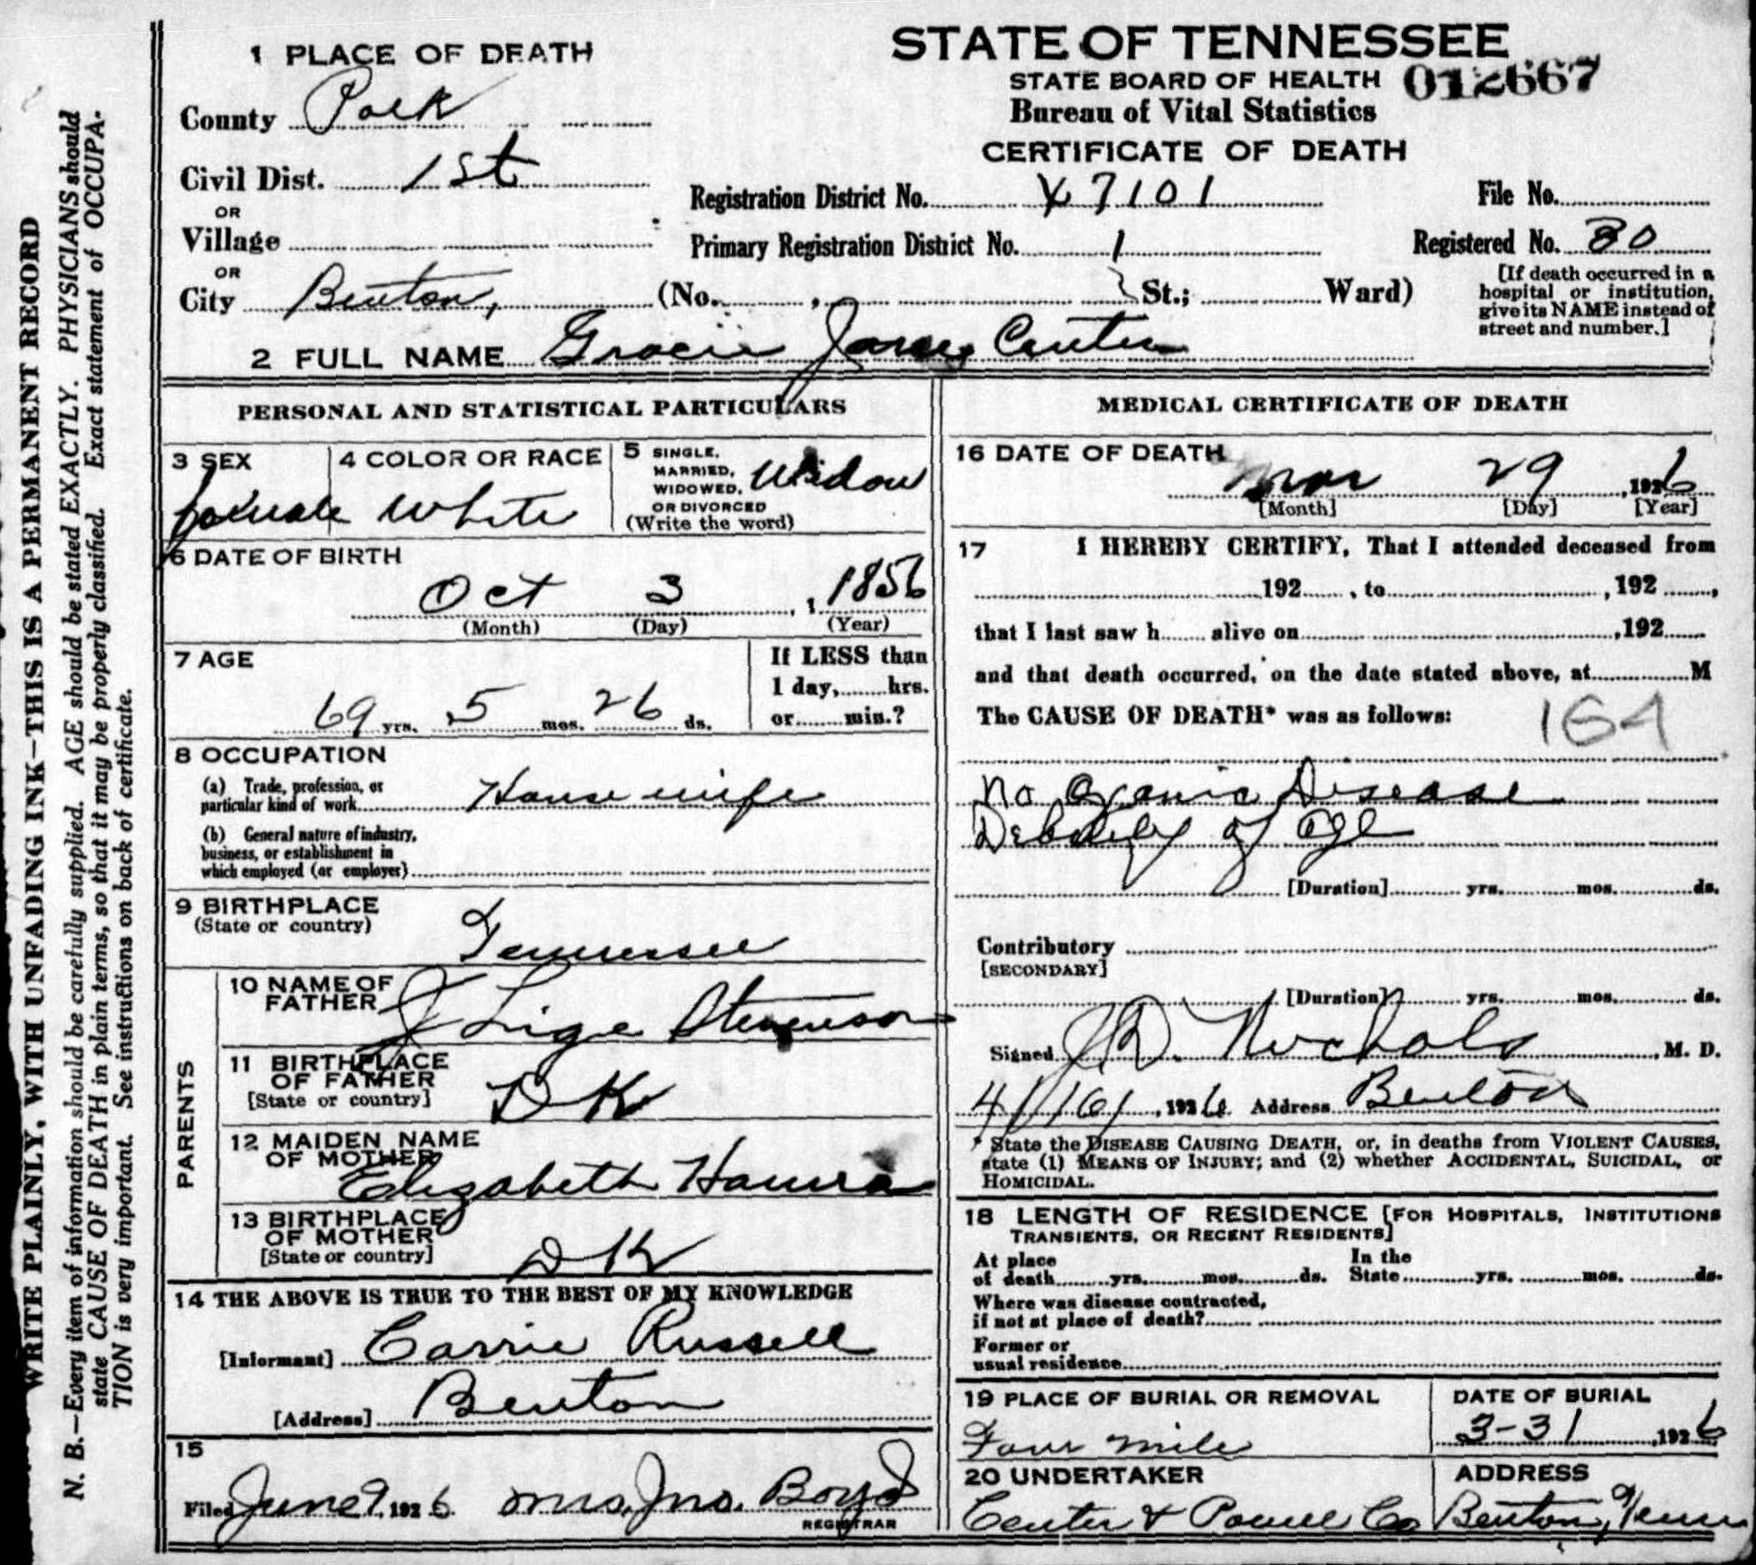 WRITE PLAINLY, WITH UNFADING INK—THIS IS A PERMANENT RECORD
N. B.—Every item of information should be carefully supplied. AGE should be stated EXACTLY. PHYSICIANS should
state CAUSE OF DEATH in plain terms, so that it may be properly classified. Exact statement of OCCUPA-
TION is very important. See instructions on back of certificate.
STATE OF TENNESSEE
STATE BOARD OF HEALTH 012667
Bureau of Vital Statistics
CERTIFICATE OF DEATH
1 PLACE OF DEATH
County Polk
Civil Dist. 1st
OR
Village
OR
City Benton, (No. , St.; Ward)
Registration District No. X7101
Primary Registration District No. 1
File No.
Registered No. 30
[If death occurred in a
hospital or institution,
give its NAME instead of
street and number.]
2 FULL NAME Gracie Jane Center
PERSONAL AND STATISTICAL PARTICULARS
3 SEX
female
4 COLOR OR RACE
White
5 SINGLE,
MARRIED,
WIDOWED,
OR DIVORCED
(Write the word)
Widow
6 DATE OF BIRTH
Oct 3, 1856
(Month) (Day) (Year)
7 AGE
69 yrs. 5 mos. 26 ds.
If LESS than
1 day, hrs.
or min.?
8 OCCUPATION
(a) Trade, profession, or
particular kind of work House wife
(b) General nature of industry,
business, or establishment in
which employed (or employer)
9 BIRTHPLACE
(State or country)
Tennessee
PARENTS
10 NAME OF
FATHER J Lige Stevenson
11 BIRTHPLACE
OF FATHER
[State or country] D K
12 MAIDEN NAME
OF MOTHER
Elizabeth
13 BIRTHPLACE
OF MOTHER
[State or country] D K
14 THE ABOVE IS TRUE TO THE BEST OF MY KNOWLEDGE
[Informant] Carrie Russell
[Address] Benton
15
Filed June 9, 1926 Mrs. Jno. Boyd
REGISTRAR
MEDICAL CERTIFICATE OF DEATH
16 DATE OF DEATH
Mar 29, 1926
[Month] [Day] [Year]
17 I HEREBY CERTIFY, That I attended deceased from
192 , to , 192 ,
that I last saw h alive on , 192
and that death occurred, on the date stated above, at M
The CAUSE OF DEATH* was as follows:
164
No Organic Disease
Debility of age
[Duration] yrs. mos. ds.
Contributory
[SECONDARY]
[Duration] yrs. mos. ds.
Signed J.D. Nichols, M. D.
4/16/, 1926 Address Benton
* State the DISEASE CAUSING DEATH, or, in deaths from VIOLENT CAUSES,
state (1) MEANS OF INJURY; and (2) whether ACCIDENTAL, SUICIDAL, or
HOMICIDAL.
18 LENGTH OF RESIDENCE [FOR HOSPITALS, INSTITUTIONS
TRANSIENTS, OR RECENT RESIDENTS]
At place
of death yrs. mos. ds.
In the
State yrs. mos. ds.
Where was disease contracted,
if not at place of death?
Former or
usual residence
19 PLACE OF BURIAL OR REMOVAL
Four mile
DATE OF BURIAL
3-31, 1926
20 UNDERTAKER
Center & Powell Co
ADDRESS
Benton, Tenn